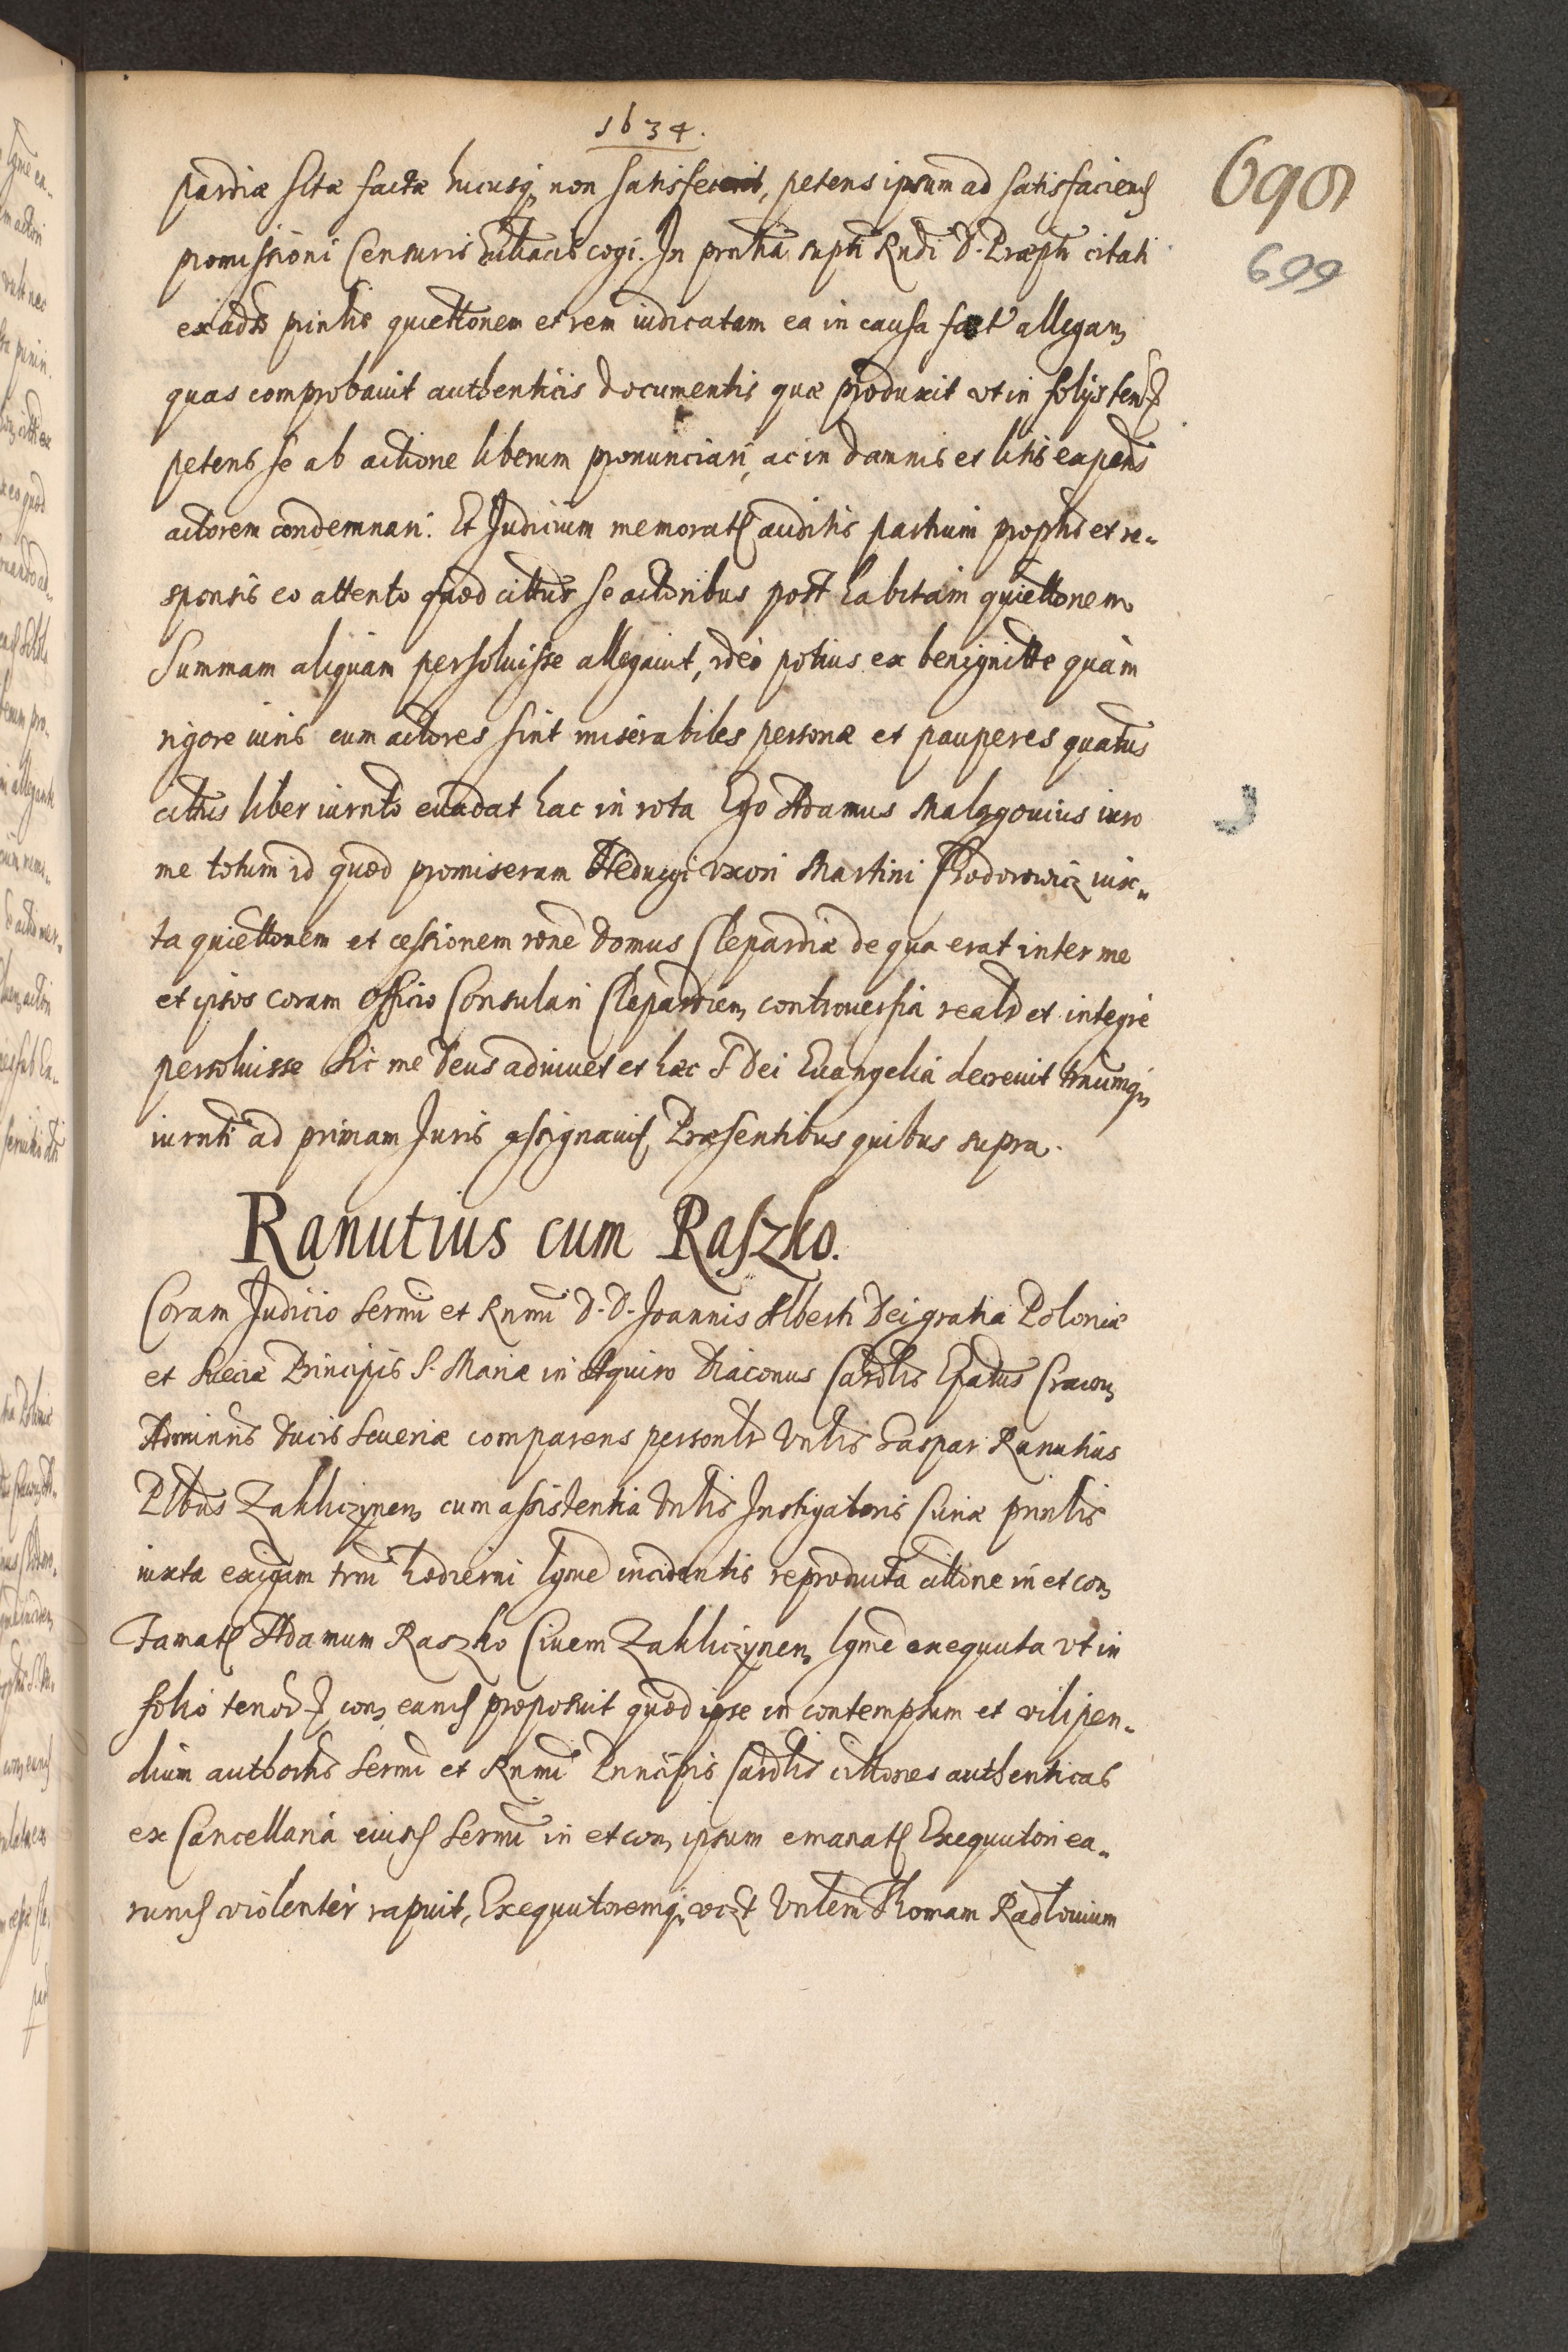 1634.
pardiæ sitæ factæ hucusq; non satisfecerit, petens ipsum ad satisfaciend
promissioni Censuris Ecclticis cogi. In pntia supti Rndi D. Præpti citati
ex adso pintis quiettonem et rem iudicatam ea in causa fact allegan,
quas comprobauit authenticis documentis quæ produxit vt in folijs
petens se ab actione liberum pronunciari, ac in damnis et litis expens
actorem condemnari. Et Judicium memorat auditis partium propts et re-
sponsis eo attento quod cittus se actoribus post habitam quiettonem
Summam aliquam persoluisse allegauit, ideo potius ex benignitte quam
rigore iuris cum actores sint miserabiles personæ et pauperes quatus
cittus liber iurnto euadat hac in rota Ego Adamus Malagouius iuro
me totum id quod promiseram Heduigi vxori Martini Chodorowicz iux-
ta quiettonem et cessionem rone domus Clepardiæ de qua erat inter me
et ipsos coram officio Consulari Clepardien, controuersia realr et integre
persoluisse Sic me Deus adiuuet et hæc S Dei Euangelia decreuit trnumq;
iurnti ad primam Juris assignauit, Præsentibus quibus supra.
Ranutius cum Raszko.
Coram Judicio Sermi et Rnmi D. D. Joannis Alberti Dei gratia Poloniæ
et Sueciæ Principis S. Mariæ in Aquiro Diaconus Cardlis Epatus Cracou,
Adminris Ducis Seueriæ comparens personlr Vnlis Gaspar Ranutius
Plbnus Zakliczynen, cum assistentia Vnlis Instigatoris Curiæ pintis
iuxta exigam trni hodierni lgme incidentis reproducta cittone in et con,
Famat Adamum Raszko Ciuem Zakliczynen, lgme exequuta vt in
folio tenor con, eund proposuit quod ipse in contemptum et vilipen-
dium authortis Sermi et Rnmi Principis Cardlis cittones authenticas
ex Cancellaria eiusd Sermi in et con, ipsum emanat Exequutori ea-
rund violenter rapuit, Exequutoremq; Vnlem Thomam Radlouium
699
699